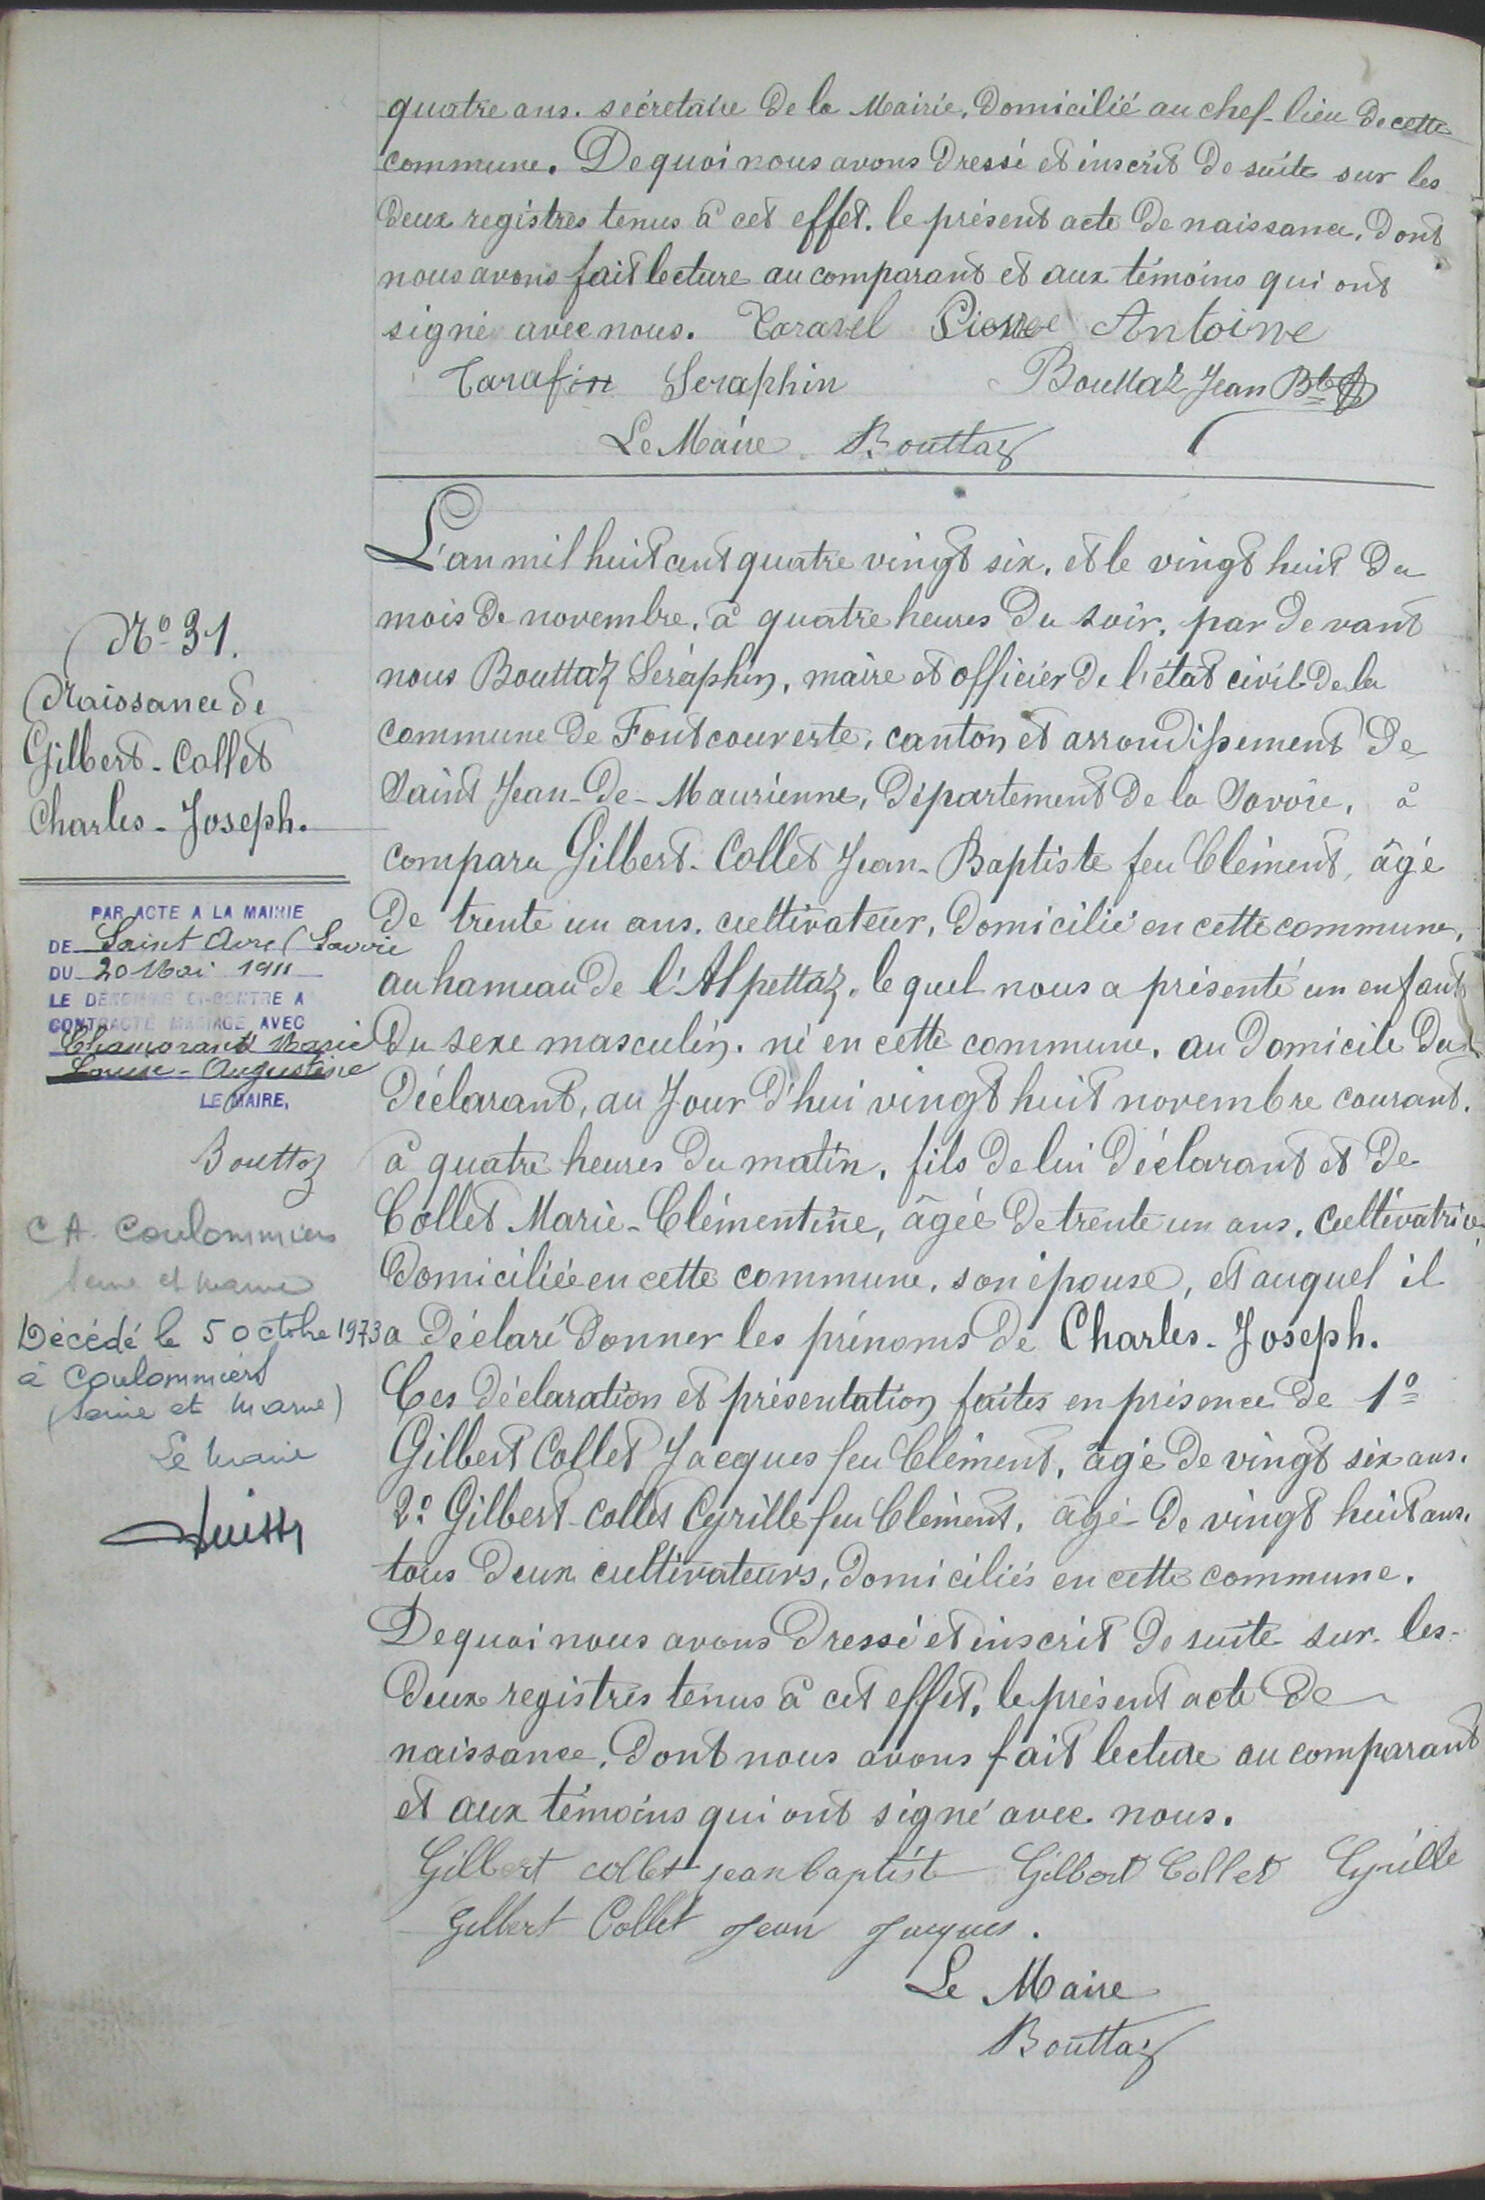 quatre ans. sécretaire de la Mairie, domicilié au chef-lieu de cette
commune. De quoi nous avons dressé et inscrit de suite sur les
deux registres tenus à cet effet. le présent acte de naissance, dont
nous avons fait lecture au comparant et aux témoins qui ont
signé avec nous. Taravel Pierre Antoine
Séraphin Bouttaz Jean Bte
Le Maire Bouttaz
L'an mil huit cent quatre vingt six, et le vingt huit du
mois de novembre, à quatre heures du soir, par devant
nous Bouttaz Séraphin, maire et officier de l'état civil de la
commune de Fontcouverte, canton et arrondissement de
Saint Jean-de-Maurienne, département de la Savoie, à
comparu Gilbert-Collet Jean-Baptiste feu Clément, âgé
de trente un ans. cultivateur, domicilié en cette commune,
au hameau de l'Alpettaz, lequel nous a présenté un enfant
du sexe masculin. né en cette commune, au domicile du
déclarant, au jour d'hui vingt huit novembre courant.
à quatre heures du matin, fils de lui déclarant et de
Collet Marie-Clémentine, âgée de trente un ans, cultivatrice,
domiciliée en cette commune, son épouse, et auquel il
a déclaré donner les prénoms de Charles-Joseph.
Ces déclaration et présentation faites en présence de 1º
Gilbert Collet Jacques feu Clément, âgé de vingt six ans.
2º Gilbert-Collet Cyrille feu Clément, âgé de vingt huit ans,
tous deux cultivateurs, domiciliés en cette commune.
De quoi nous avons dressé et inscrit de suite sur les
deux registres tenus à cet effet, le présent acte de
naissance, dont nous avons fait lecture au comparant
et aux témoins qui ont signé avec nous.
Gilbert collet jean baptiste Gilbert Collet Cyrille
Gilbert Collet Jean Jacques.
Le Maire
Bouttaz
Nº 31.
Naissance de
Gilbert-Collet
Charles-Joseph.
PAR ACTE A LA MAIRIE
DE Saint Avre (Savoie
DU 20 Mai 1911
LE DÉNOMMÉ CI-CONTRE A
CONTRACTÉ MARIAGE AVEC
Chamorand Marie
Louise-Augustine
LE MAIRE,
Bouttaz
CA. Coulommiers
Seine et Marne
Décédé le 5 octobre 1973
à Coulommiers
(Seine et Marne)
Le Maire